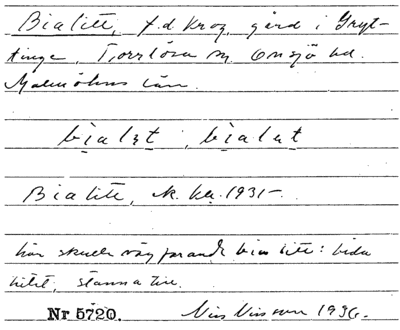 Bialitt, f.d. krog, gård i Gryt-
tinge, Torrlösa sn, Onsjö hd.
Malmöhus län.
bialıt, bialıt
Bialitt, ek. ka. 1931-
här skulle vägfarande bia litt: bida
litet, stanna
Nr 5720. Nils Nilsson 1936.